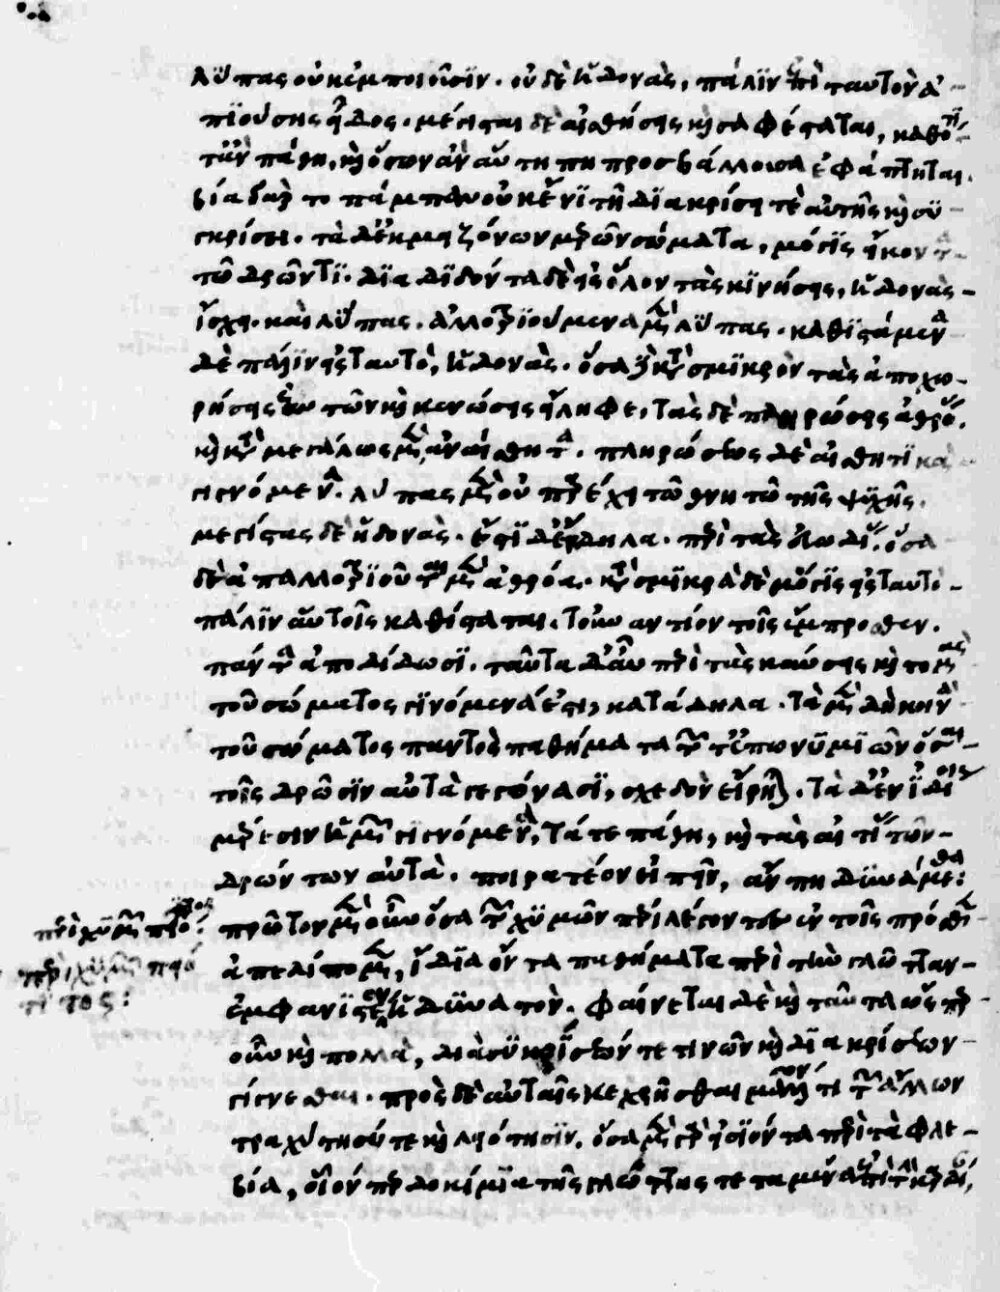 λϋπας οὐκ ἐμποιοῦσϊν. οὐδὲ ἡδονὰς, πάλϊν ἐπὶ ταυτὸν ἀ-
πϊούσης εἶδος. μέγισται δὲ αἰσθήσεις κὶ σαφέσταται, καθότι
τ' ἂν πάθη, κὶ ὅσων ἂν αὐτη πη προσβάλλουσα ἐφάπτηται.
βία γαρ το πάμπαν οὐκ ἔνϊ τῆ δϊακρίσει τὲ αὐτῆς κὶ σϋ-
γκρίσει. τὰ δ' ἐκ μειζόνων μερῶν σώματα, μόγϊς εἴκοντα
τῶ δρῶντϊ. δϊαδϊδόντα δὲ εἰς ὅλον τὰς κϊνήσεις, ἡδονὰς-
ἴσχει. καὶ λϋπας. ἀλλοτρϊούμενα μὲν λϋπας. καθϊστάμενα
δὲ πάλϊν εἰς ταυτὸ, ἡδονὰς. ὅσα δὲ κατὰ σμϊκρὸν τὰς ἀποχω-
ρήσεις ἑαυτῶν κὶ κενώσεις εἴληφε, τὰς δὲ πληρώσεις ἀθρόας.
κὶ κατὰ μεγάλως μὲν ἀναίσθητα. πληρώσεως δὲ αἰσθητϊκὰ
γιγνόμενα. λύπας μὲν οὐ παρέχει τῶ θνητῶ τῆς ψϋχῆς.
μεγίστας δὲ ἡδονὰς. ἔστϊ δὲ ἔνδηλα. περὶ τὰς εὐωδίας. ὅσα
δὲ ἀπαλλοτρϊοῦται μὲν ἀθρόα. κατὰ σμϊκρὰ δὲ μόγϊς εἰς ταυτὸ-
πάλϊν αὑτοῖς καθίσταται. τοὐναντίον τοῖς ἔμπροσθεν.
πάντα ἀποδίδωσϊ. ταῦτα δ' αὖ περὶ τὰς καύσεις κὶ τομὰς
τοῦ σώματος γϊνόμενά ἐστι, κατάδηλα. τὰ μὲν δὴ κοινὰ
τοῦ σώματος παντὸς παθήματα τῶν τ' ἐπωνϋμϊῶν ὅσαι-
τοῖς δρῶσϊν αὐτὰ γεγόνασϊ, σχεδὸν εἴρηται. τὰ δ' ἐν ἰδίοις
μέρεσιν ἡμῶν γιγνόμενα, τά τε πάθη, κὶ τὰς αἰτίας τῶν-
δρώντων αὐτὰ. πειρατέον εἰπεῖν, ἄν πη δϋνώμεθα:
πρῶτον μὲν οὖν ὅσα τῶν χϋμῶν πέρϊ λέγοντες ἐν τοῖς πρόσθεν
ἀπελίπομεν, ἴδϊα ὄντα παθήματα περὶ τὴν γλῶτταν-
ἐμφανϊστέον ἧ δϋνατόν. φαίνεται δὲ κὶ ταῦτα ὥσπερ
οὖν κὶ πολλὰ, διὰ σϋγκρίσεών τε τινῶν κὶ δϊακρίσεων-
γίγνεσθαι. πρὸς δὲ αὐταῖς κεχρῆσθαι μᾶλλόν τι τῶν ἄλλων
τραχύτησί τε κὶ λειότησϊν. ὅσα μὲν γὰρ εἰσϊόντα περὶ τὰ φλέ-
βια, οἷόν περ δοκίμϊα τῆς γλώττης τεταμένα ἐπὶ τὴν καρδίαν,
περὶ χϋμῶν ποιότητος:
περὶ χϋμῶν ποιό
τητος: